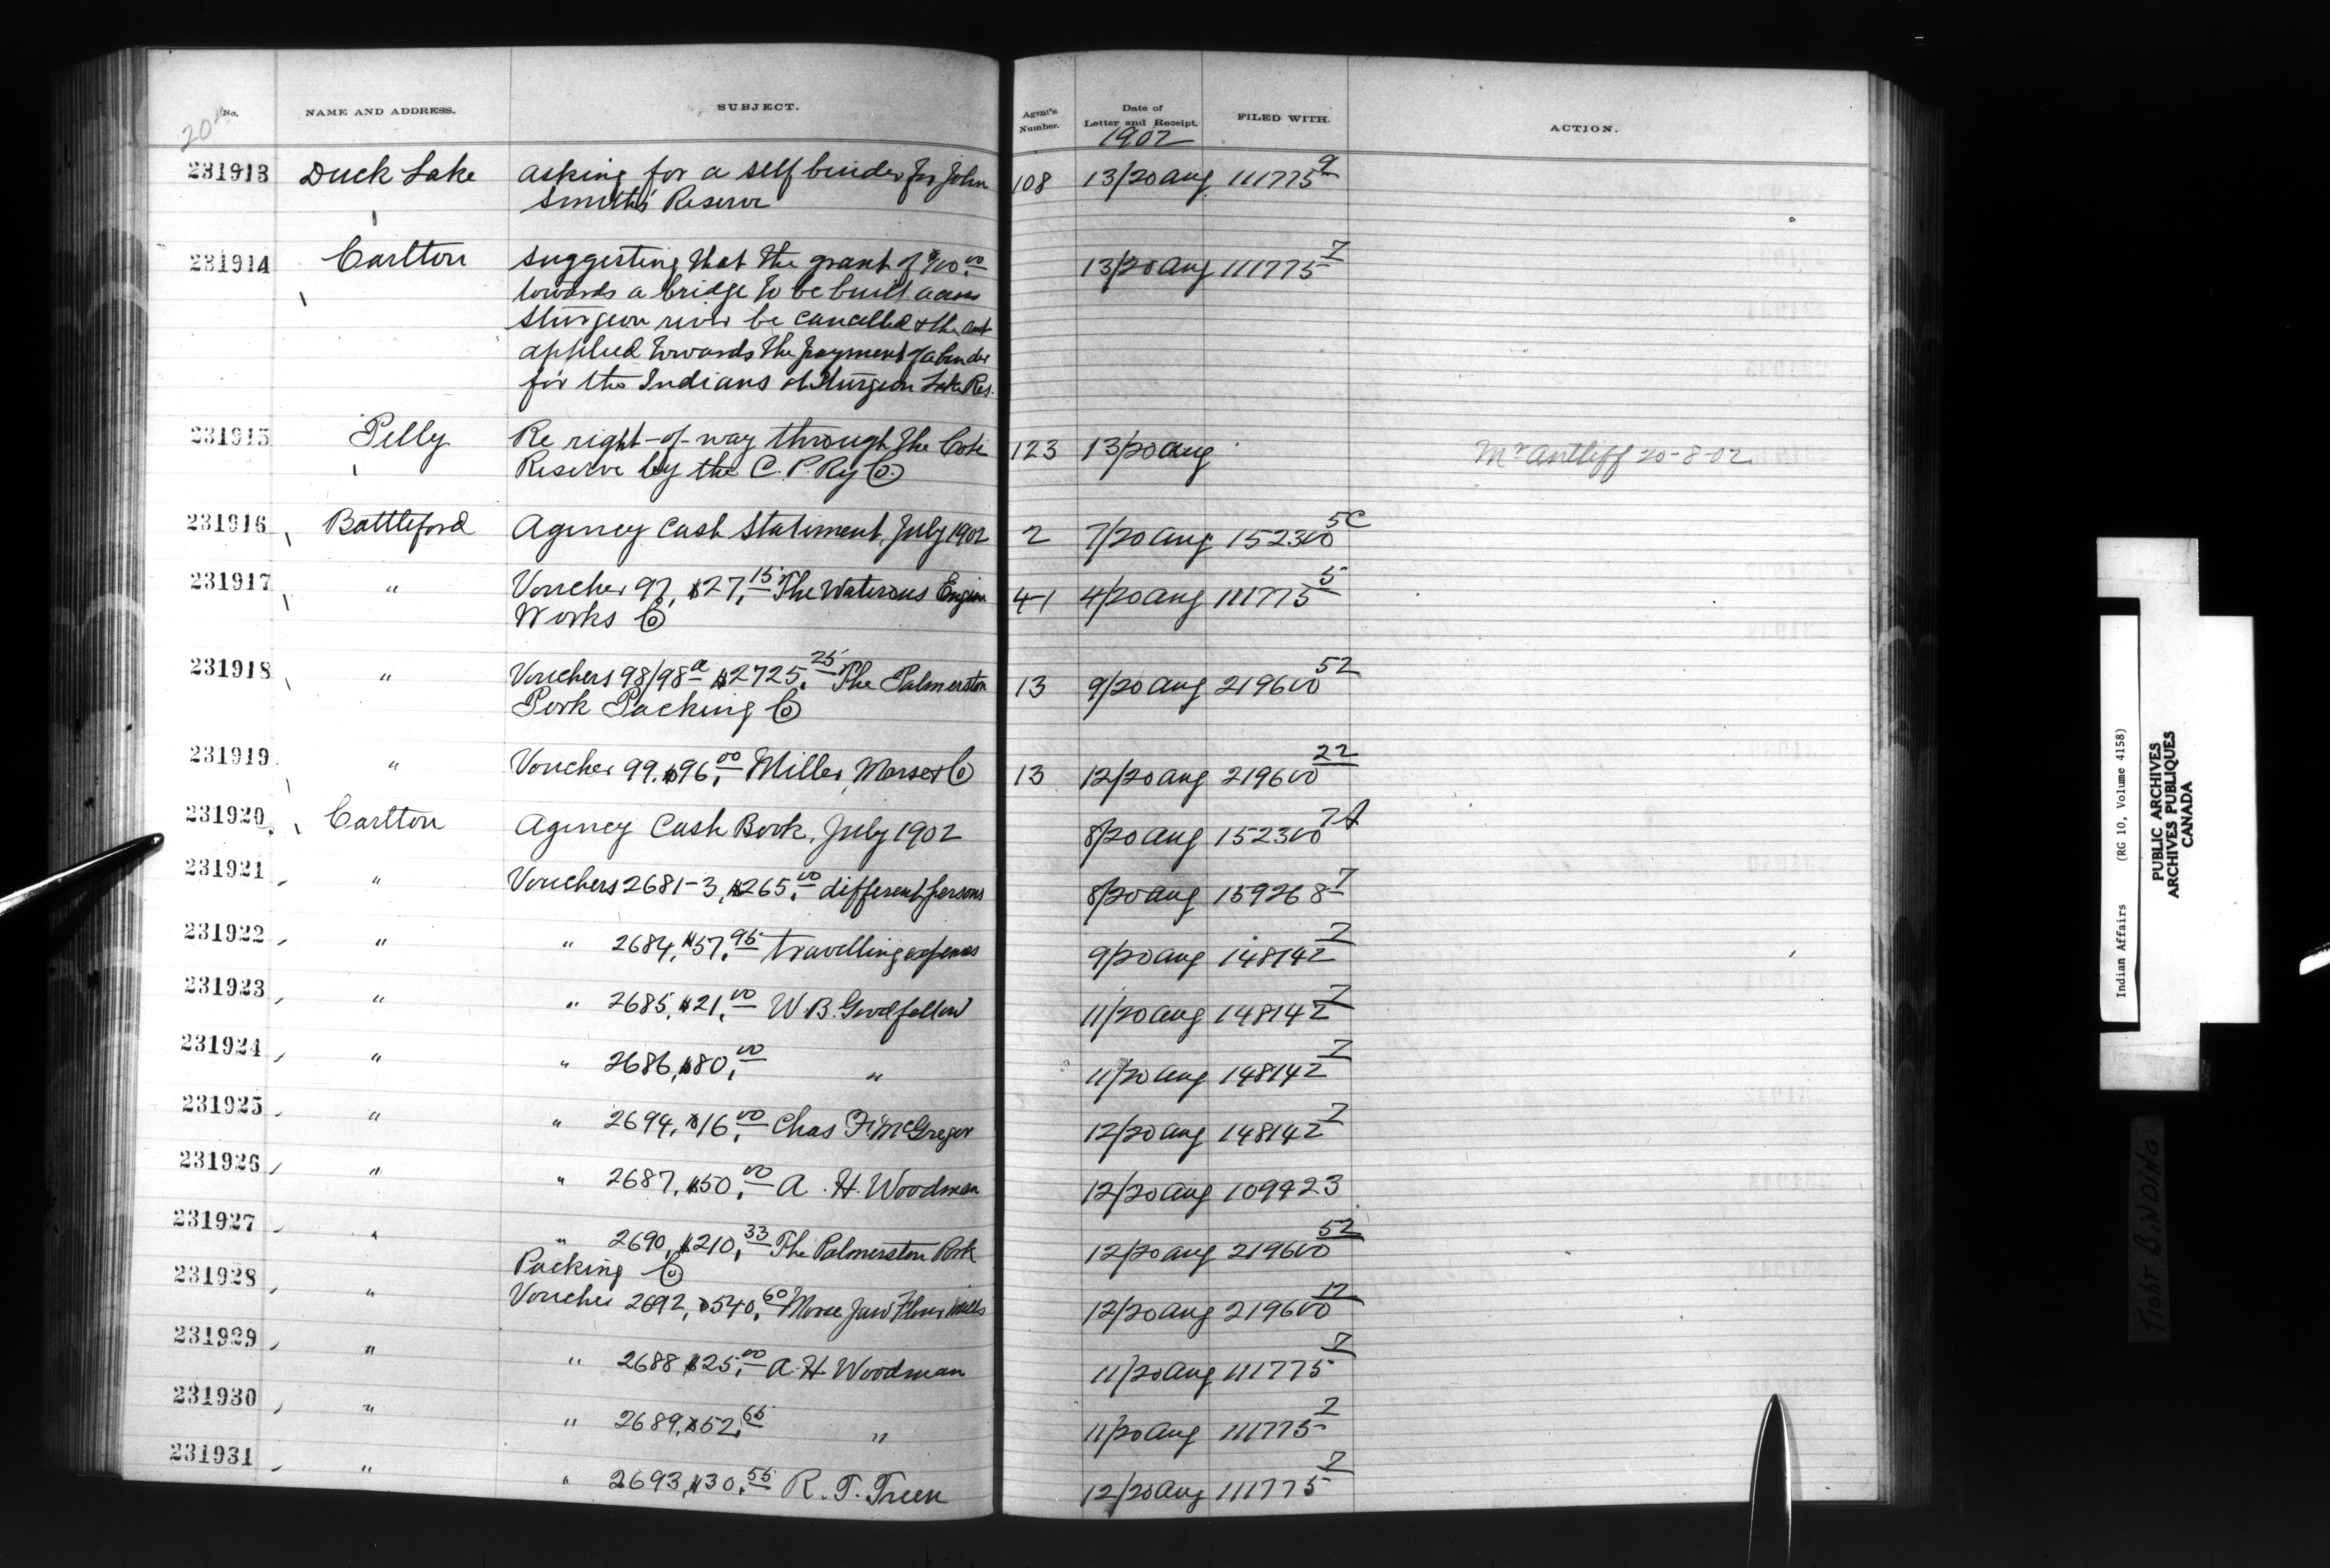 No. NAME AND ADDRESS. SUBJECT. Agent's Number. Date of Letter and Receipt. FILED WITH. ACTION.
20th 1902
231913 Duck Lake asking for a self binder for John 108 13/20 Aug 111775 9
Smith's Reserve
231914 Carlton suggesting that the grant of $100.00 13/20 Aug 111775 7
towards a bridge to be built across
Sturgeon river be cancelled & the amt
applied towards the payment of a binder
for the Indians of Sturgeon Lake Res.
231915 Pelly Re right-of-way through the Cote 123 13/20 Aug Mr Antliff 20-8-02
Reserve by the C. P. Ry Co.
231916 Battleford Agency Cash Statement, July 1902 2 7/20 Aug 152300 5C
231917 " Voucher 97, $27.15 The Waterous Engine 41 4/20 Aug 111775 5
Works Co
231918 " Vouchers 98/98a $2725.25 The Palmerston 13 9/20 Aug 219600 52
Pork Packing Co
231919 " Voucher 99, $96.00 Miller, Morse & Co 13 12/20 Aug 219600 22
231920 Carlton Agency Cash Book, July 1902 8/20 Aug 152300 7A
231921 " Vouchers 2681-3, $265.00 different persons 8/20 Aug 159268 7
231922 " " 2684, $57.95 travelling expenses 9/20 Aug 148142 7
231923 " " 2685, $21.00 W. B. Goodfellow 11/20 Aug 148142 7
231924 " " 2686, $80.00 " 11/20 Aug 148142 7
231925 " " 2694, $16.00 Chas F. McGregor 12/20 Aug 148142 7
231926 " " 2687, $50.00 A. H. Woodman 12/20 Aug 109423
231927 " " 2690, $210.33 The Palmerston Pork 12/20 Aug 219600 52
Packing Co
231928 " Voucher 2692, $540.60 Moose Jaw Flour Mills 12/20 Aug 219600 12
231929 " " 2688 $25.00 A. H. Woodman 11/20 Aug 111775 7
231930 " " 2689, $52.65 " 11/20 Aug 111775 7
231931 " " 2693, $30.55 R. T. Treen 12/20 Aug 111775 7
Indian Affairs (RG 10, Volume 4158)
PUBLIC ARCHIVES
ARCHIVES PUBLIQUES
CANADA
TIGHT BINDING